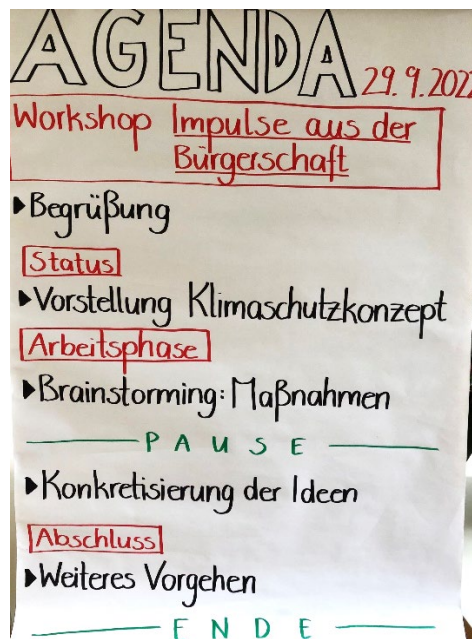 AGENDA
29.9.2022
Workshop Impulse aus der
Bürgerschaft
▶Begrüßung
Status
▶Vorstellung Klimaschutzkonzept
Arbeitsphase
▶Brainstorming: Maßnahmen
PAUSE
▶Konkretisierung der Ideen
Abschluss
▶Weiteres Vorgehen
ENDE